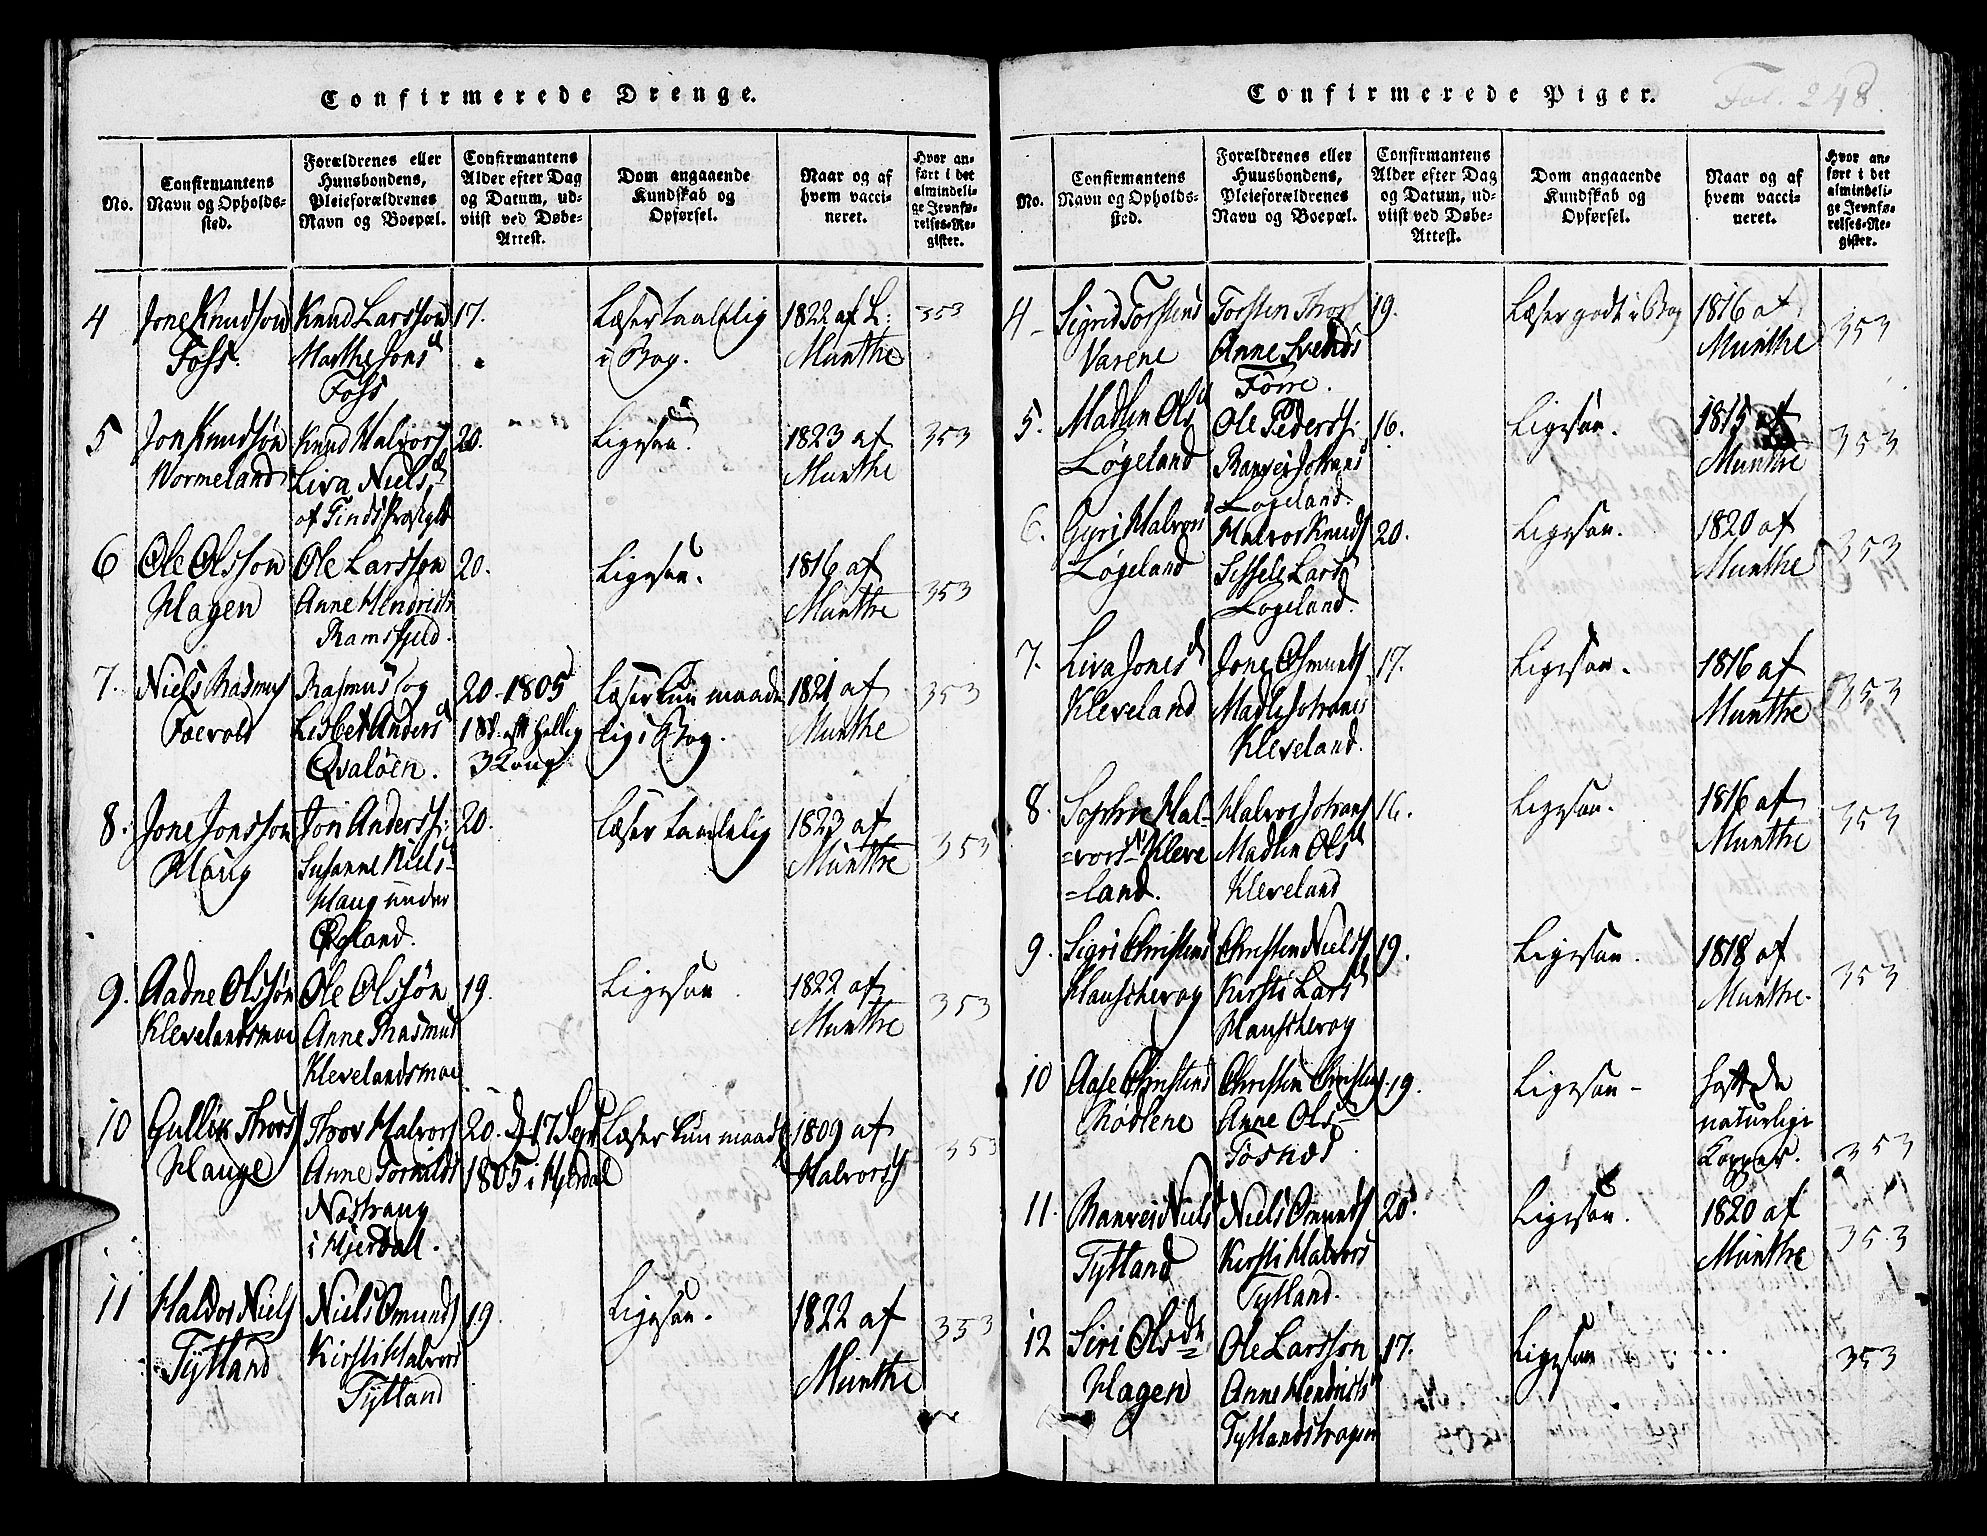 Confirmerede Drenge.
No.
Confirmantens
Navn og Opholds-
sted.
Forældrenes eller
Huusbondens,
Pleieforældrenes
Navn og Boepæl.
Confirmantens
Alder efter Dag
og Datum, ud-
viist ved Døbe-
Attest.
Dom angaaende
Kundskab og
Opførsel.
Naar og af
hvem vacci-
neret.
Hvor an-
ført i det
almindeli-
ge Jevnfø-
relses-Re-
gister.
4
Jone Knudsøn
Foss.
Knud Larssøn
Marthe Jonsd
Foss
17.
Læser taalelig
i Bog.
1822 af L:
Munthe
353
5
Jon Knudsøn
Wormeland
Knud Halvors
Liva Nielsd
af Tinds Præstgld
20.
Ligesaa.
1823 af
Munthe
353
6
Ole Olsson
Hagen
Ole Larsson
Anne Hendrichs
Ramsfjeld.
20.
Ligesaa.
1816 af
Munthe
353
7.
Niels Rasmus
Foevold
Rasmus og
Lisbet Andersd
Qvaløen.
20-1805
18d. eft Hellig
3 Kong
Læser kun maade
lig i Bog.
1821 af
Munthe
353
8.
Jone Jonsson
Haug
Jon Anderss:
Susanne Niels
Haug under
Øgland.
20.
Læser taalelig
1823 af
Munthe
353
9.
Aadne Olssøn
Klevelandsmoe
Ole Olssøn
Anne Rasmusd
Klevelandsmoe
19.
Ligesaa
1822 af
Munthe
353
10
Gullik Thors
Hauge
Thov Halvors
Anne Torkilds
Nøstraug
i Hjerdal.
20. D 17 Sept
1805 i Hjerdal
Læser kun maadl
1809 af
Halvors
353
11
Haldor Niels
Tytland
Niels Omunds
Kirsti Halvors
Tytland
19.
Ligesaa.
1822 af
Munthe
353
Confirmerede Piger.
Fol. 248.
No.
Confirmantens
Navn og Opholds-
sted.
Forældrenes eller
Huusbondens,
Pleieforældrenes
Navn og Boepæl.
Confirmantens
Alder efter Dag
og Datum, ud-
viist ved Døbe-
Attest.
Dom angaaende
Kundskab og
Opførsel.
Naar og af
hvem vacci-
neret.
Hvor an-
ført i det
almindeli-
ge Jevnfø-
relses-Re-
gister.
4
Sigrid Torstens
Varene
Torsten Thors
Anne Svends
Førre.
19.
Læser godt i Bog
1816 af
Munthe
353
5.
Madlen Olsd
Løgeland
Ole Peders:
Ranvei Johans
Løgeland.
16.
Ligesaa.
1815 af
Munthe
353
6.
Gyri Halvors
Løgeland
Halvor Knuds
Sissele Lars
Løgeland.
20.
Ligesaa.
1820 af
Munthe
353
7.
Liva Jonesd
Kleveland
Jone Osmunds
Madli Johans
Kleveland.
17.
Ligesaa.
1816 af
Munthe
353
8.
Sophie Hal-
=vorsd Kleve
=land.
Halvor Johans
Madlen Olsd
Kleveland
16.
Ligesaa.
1816 af
Munthe
353
9.
Sigri Christens
Hauscherog
Christen Niels
Kirsti Larsd
Hauscherog
19.
Ligesaa.
1818 af
Munthe.
353
10
Aase Christens
Rødlene
Christen Christens
Anne Ols
Tosnæs
19.
Ligesaa-
haft de
naturlige
Kopper.
353
11.
Ranvei Niels
Tytland
Niels Omunds
Kirsti Halvors
Tytland.
20.
Ligesaa.
1820 af
Munthe
353
12
Siri Olsd
Hagen
Ole Larsson
Anne Hendrichs
Tytlandshagen
17.
Ligesaa
353